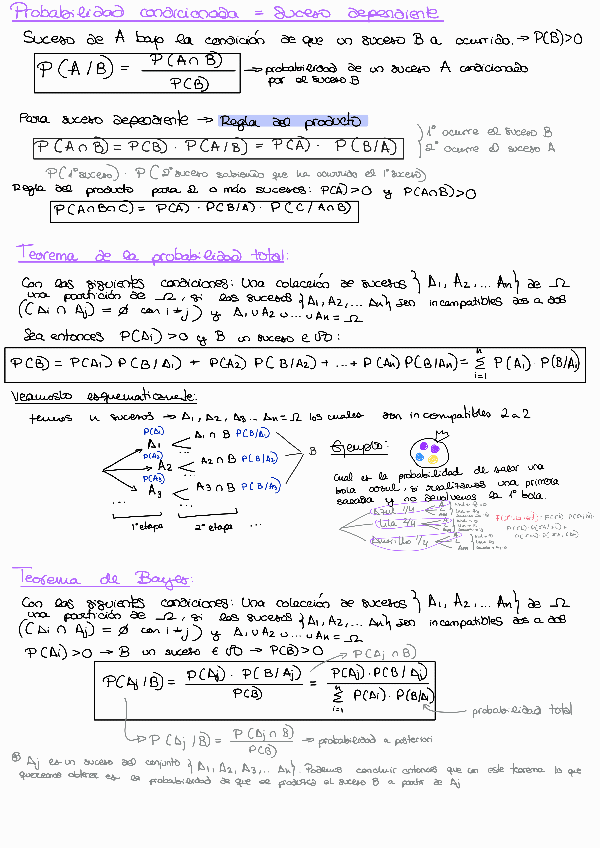 Probabilidad condicionada = suceso dependiente
Suceso de A bajo la condición de que un suceso B a ocurrido. → P(B)>0
P(A/B) = P(A∩B) / P(B) → probabilidad de un suceso A condicionado
por el suceso B
Para suceso dependiente → Regla del producto
P(A∩B) = P(B) · P(A/B) = P(A) · P(B/A)
1º ocurre el suceso B
2º ocurre el suceso A
P(1º suceso) · P(2º suceso sabiendo que ha ocurrido el 1º suceso)
Regla del producto para 2 o más sucesos: P(A)>0 y P(A∩B)>0
P(A∩B∩C) = P(A) · P(B/A) · P(C/A∩B)
Teorema de la probabilidad total:
Con las siguientes condiciones: Una colección de sucesos {A₁, A₂, ... Aₙ} de Ω
una partición de Ω, si los sucesos {A₁, A₂, ... Aₙ} son incompatibles dos a dos
((Ai ∩ Aj) = ∅ con i≠j) y A₁∪A₂∪...∪Aₙ = Ω
Sea entonces P(Ai)>0 y B un suceso ∈ :
P(B) = P(A₁) P(B/A₁) + P(A₂) P(B/A₂) + ... + P(Aₙ) P(B/Aₙ) = Σ P(Ai) P(B/Ai)
n
i=1
Veamoslo esquematicamente:
tenemos n sucesos → A₁, A₂, A₃... Aₙ = Ω los cuales son incompatibles 2 a 2
P(A₁) A₁ A₁∩B P(B/A₁)
...
P(A₂) A₂ A₂∩B P(B/A₂) B
...
P(A₃) A₃ A₃∩B P(B/A₃)
... ...
1ª etapa 2ª etapa ...
Ejemplo:
Cual es la probabilidad de sacar una
bola azul, si realizamos una primera
sacada y no devolvemos la 1ª bola.
Azul 1/4
Lila 2/4
Amarillo 1/4
Teorema de Bayes:
Con las siguientes condiciones: Una colección de sucesos {A₁, A₂, ... Aₙ} de Ω
una partición de Ω, si los sucesos {A₁, A₂, ... Aₙ} son incompatibles dos a dos
((Ai ∩ Aj) = ∅ con i≠j) y A₁∪A₂∪...∪Aₙ = Ω
P(Ai)>0 → B un suceso ∈ → P(B)>0
P(Aj∩B)
P(Aj/B) = P(Aj) · P(B/Aj) / P(B) = P(Aj) · P(B/Aj) / Σ P(Ai) · P(B/Ai)
n
i=1
probabilidad total
P(Aj/B) = P(Aj∩B) / P(B) → probabilidad a posteriori
Aj es un suceso del conjunto {A₁, A₂, A₃, ... Aₙ}. Podemos concluir entonces que en este teorema lo que
queremos obtener es la probabilidad de que se produzca el suceso B a partir de Aj